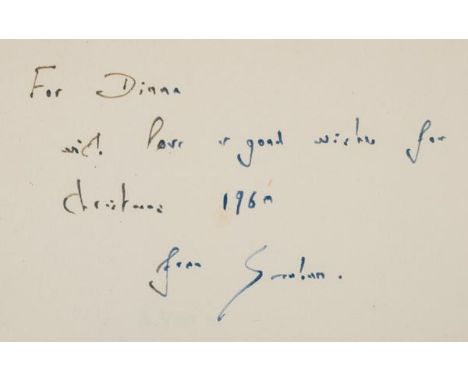 For Diana
with love & good wishes for
Christmas 1960
from Graham.